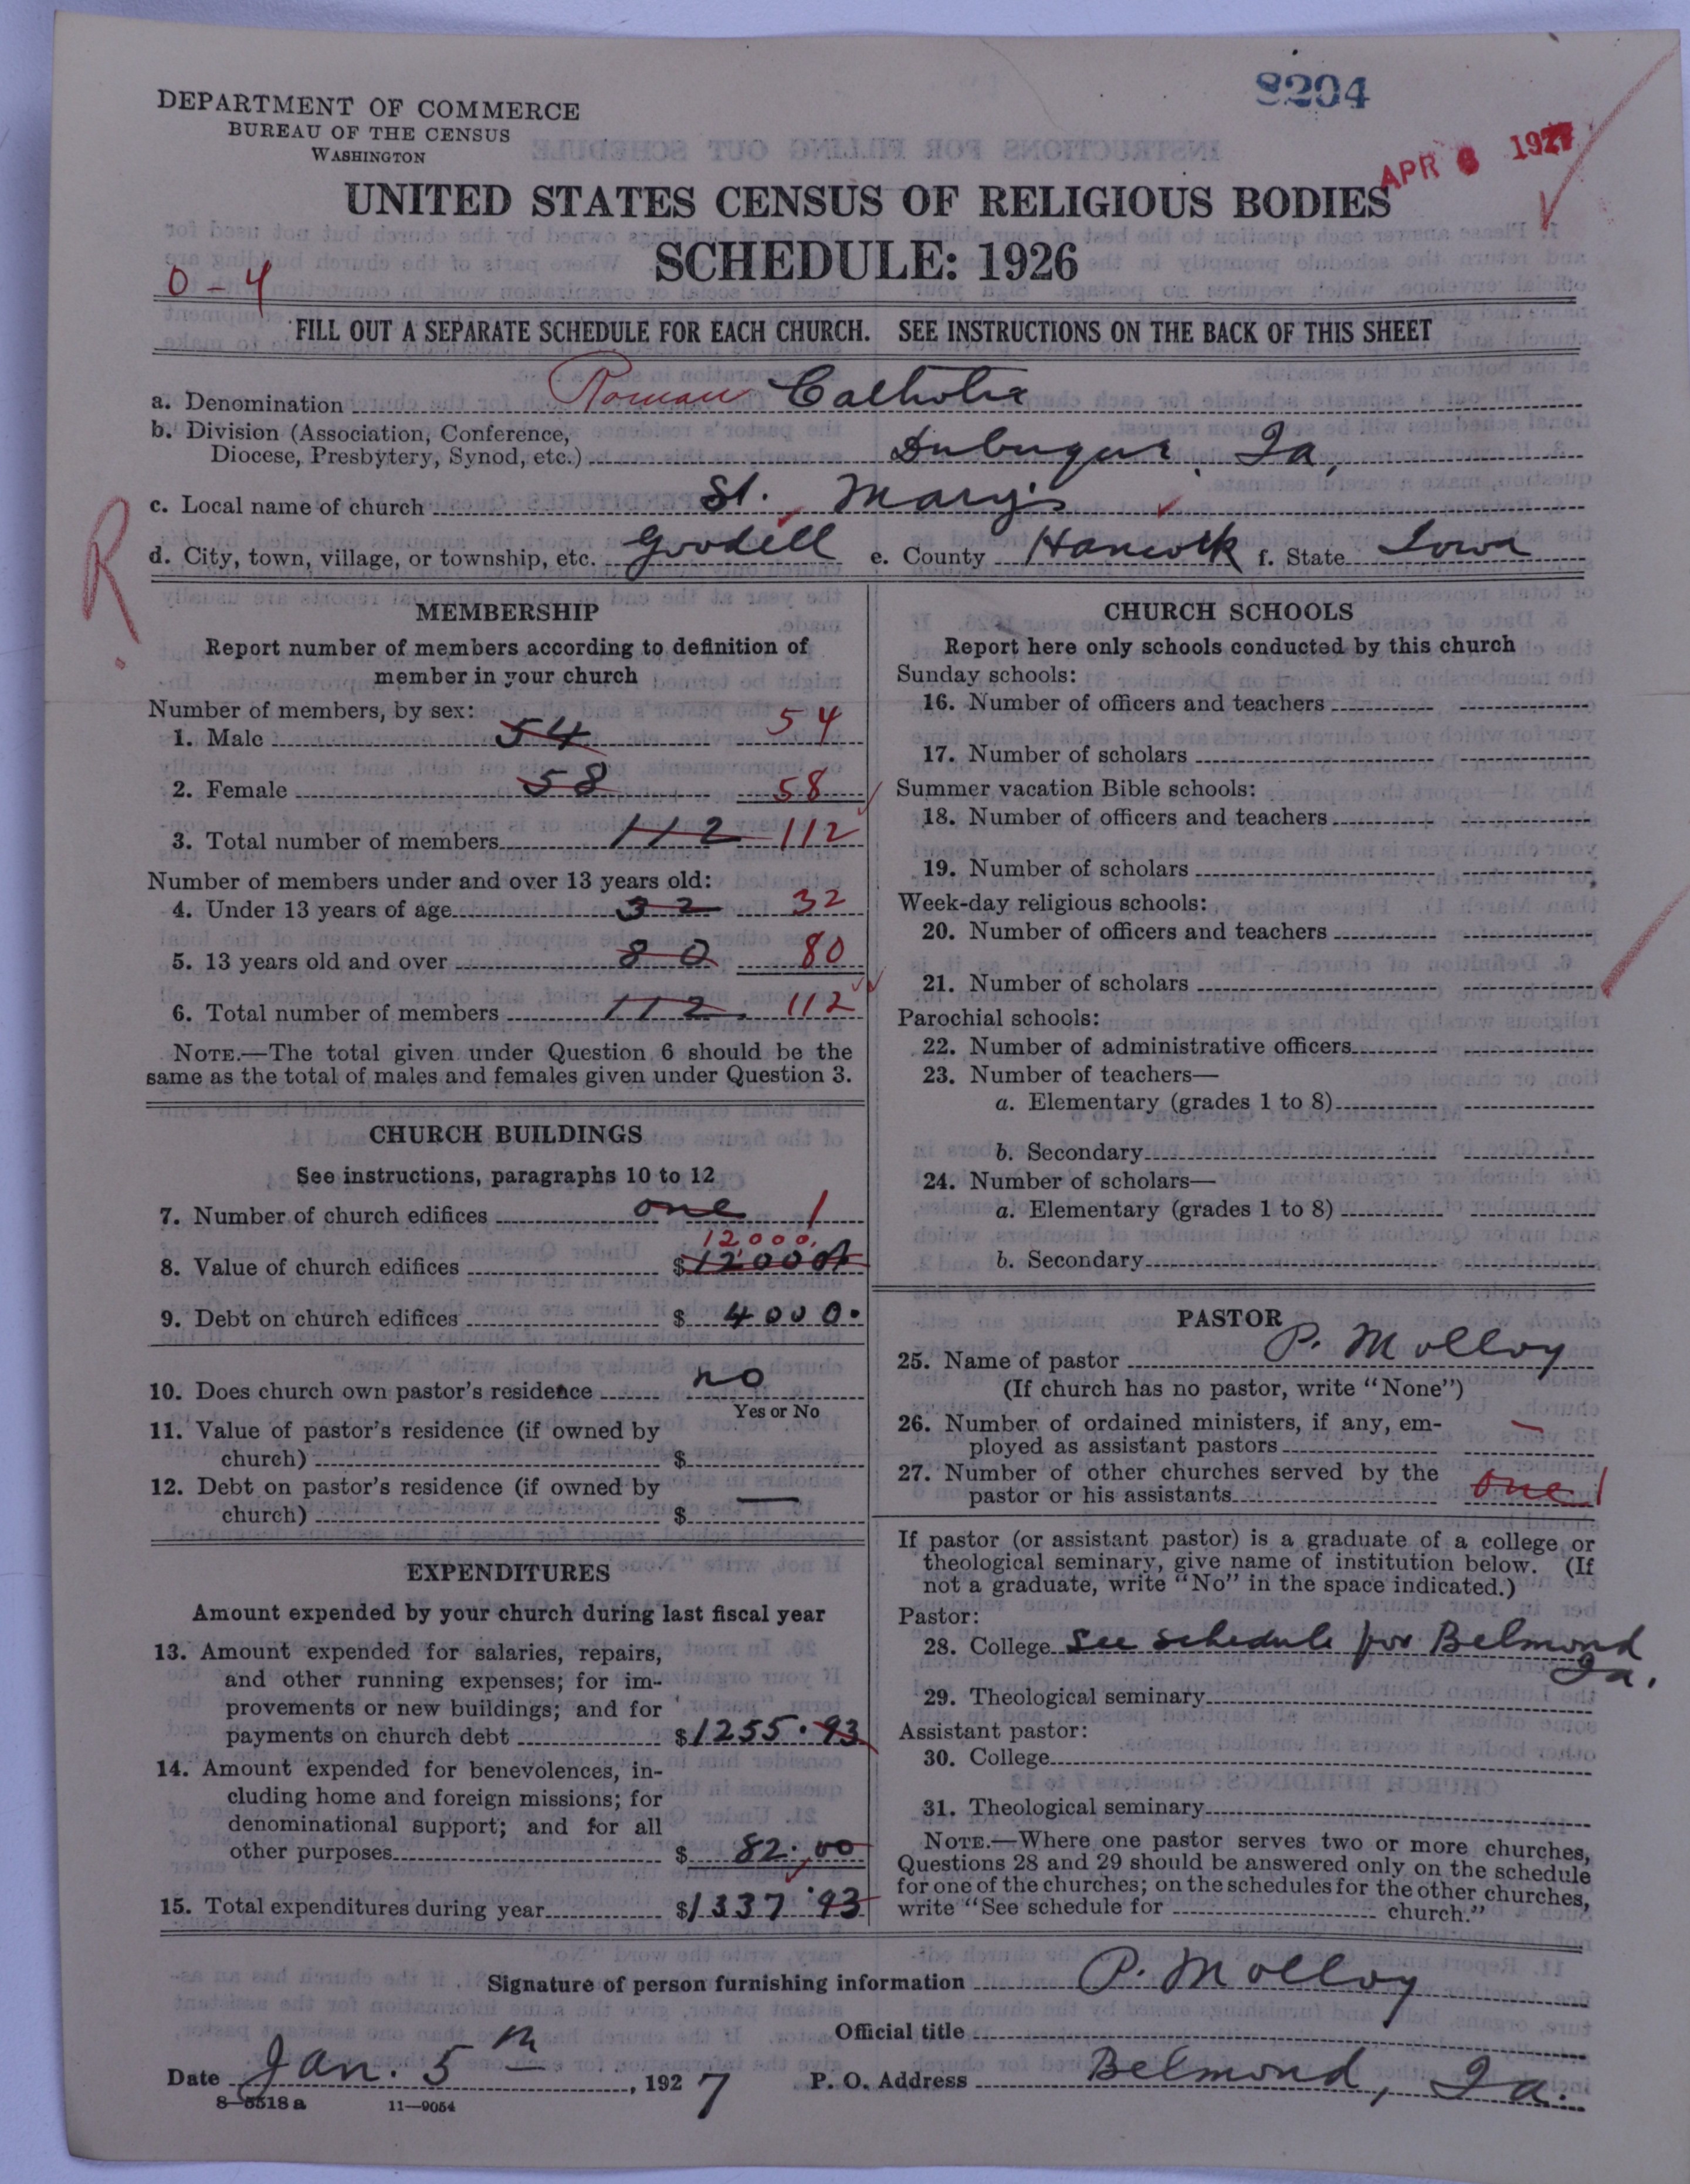 8204
DEPARTMENT OF COMMERCE
BUREAU OF THE CENSUS
WASHINGTON
APR 6 1927
UNITED STATES CENSUS OF RELIGIOUS BODIES
SCHEDULE: 1926
0-4
FILL OUT A SEPARATE SCHEDULE FOR EACH CHURCH. SEE INSTRUCTIONS ON THE BACK OF THIS SHEET
a. Denomination Roman Catholic
b. Division (Association, Conference,
Diocese, Presbytery, Synod, etc.) Dubuque, Ia.
c. Local name of church St. Mary's
R.
d. City, town, village, or township, etc. Goodell e. County Hancock f. State Iowa
MEMBERSHIP
Report number of members according to definition of
member in your church
Number of members, by sex:
1. Male 54 54
2. Female 58 58
3. Total number of members 112 112
Number of members under and over 13 years old:
4. Under 13 years of age 32 32
5. 13 years old and over 80 80
6. Total number of members 112 112
NOTE.—The total given under Question 6 should be the
same as the total of males and females given under Question 3.
CHURCH BUILDINGS
See instructions, paragraphs 10 to 12
7. Number of church edifices one 1
12000.
8. Value of church edifices $12000
9. Debt on church edifices $ 4000.
10. Does church own pastor's residence no
Yes or No
11. Value of pastor's residence (if owned by
church) $
12. Debt on pastor's residence (if owned by
church) $ —
EXPENDITURES
Amount expended by your church during last fiscal year
13. Amount expended for salaries, repairs,
and other running expenses; for im-
provements or new buildings; and for
payments on church debt $1255.93
14. Amount expended for benevolences, in-
cluding home and foreign missions; for
denominational support; and for all
other purposes $ 82.00
15. Total expenditures during year $1337.93
CHURCH SCHOOLS
Report here only schools conducted by this church
Sunday schools:
16. Number of officers and teachers
17. Number of scholars
Summer vacation Bible schools:
18. Number of officers and teachers
19. Number of scholars
Week-day religious schools:
20. Number of officers and teachers
21. Number of scholars
Parochial schools:
22. Number of administrative officers
23. Number of teachers—
a. Elementary (grades 1 to 8)
b. Secondary
24. Number of scholars—
a. Elementary (grades 1 to 8)
b. Secondary
PASTOR
25. Name of pastor P. Molloy
(If church has no pastor, write "None")
26. Number of ordained ministers, if any, em-
ployed as assistant pastors —
27. Number of other churches served by the
pastor or his assistants one 1
If pastor (or assistant pastor) is a graduate of a college or
theological seminary, give name of institution below. (If
not a graduate, write "No" in the space indicated.)
Pastor:
28. College See schedule for Belmond
Ia.
29. Theological seminary
Assistant pastor:
30. College
31. Theological seminary
NOTE.—Where one pastor serves two or more churches,
Questions 28 and 29 should be answered only on the schedule
for one of the churches; on the schedules for the other churches,
write "See schedule for church."
Signature of person furnishing information P. Molloy
Official title
Date Jan. 5th, 1927 P. O. Address Belmond, Ia.
8—5518 a 11—9054